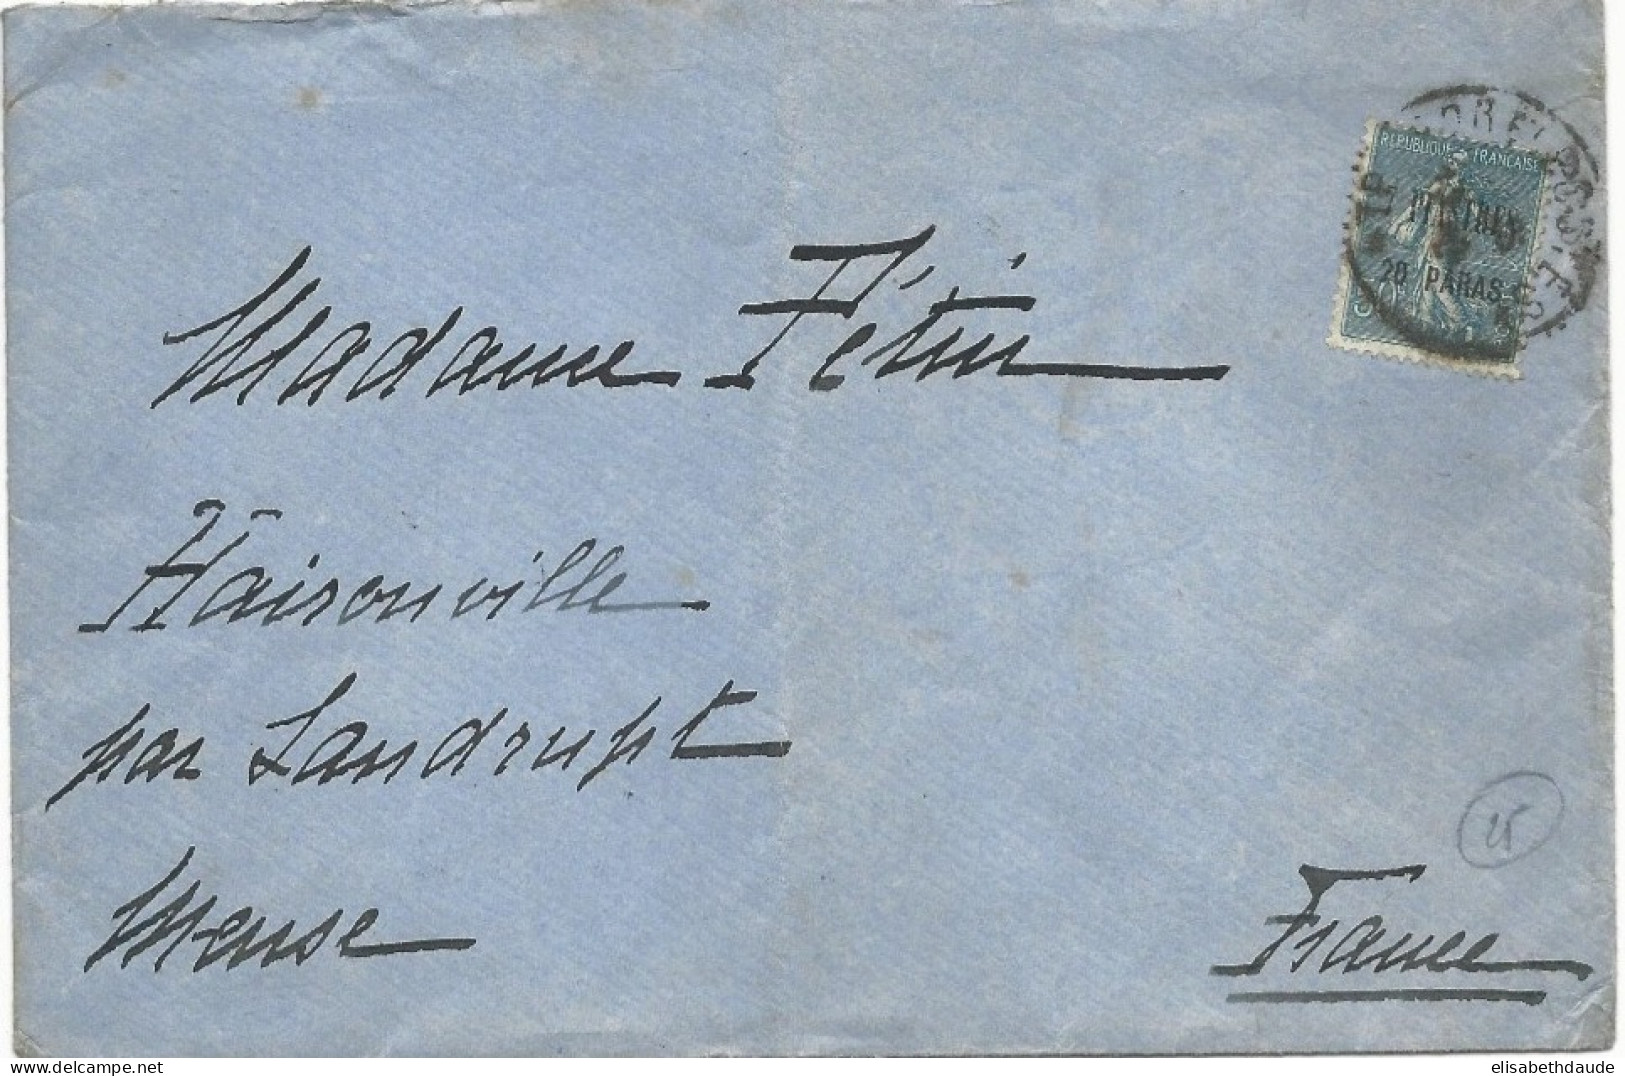 REPUBLIQUE FRANÇAISE
PIASTRES
20 PARAS
Madame Pétin
Haironville
par Landrupt
Meuse
25
France
delcampe.net
elisabethdaude